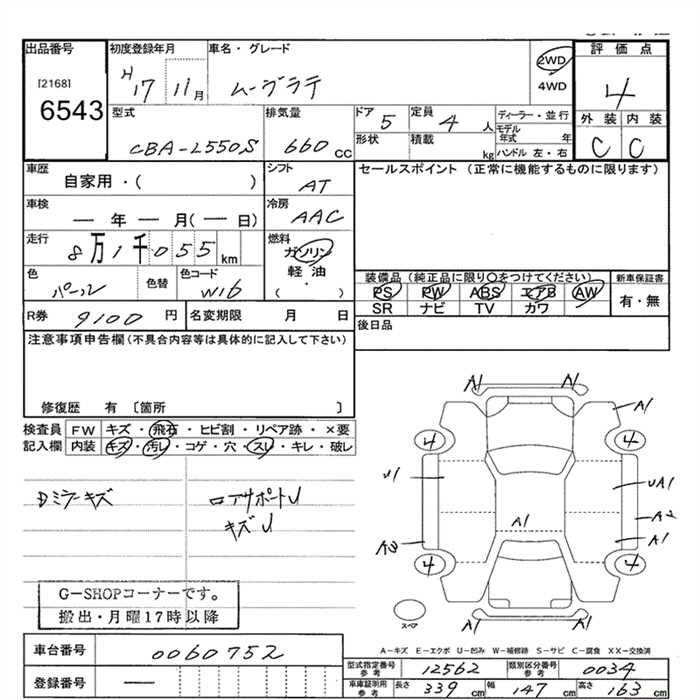 出品番号 初度登録年月 車名・グレード 評価点
[2168] H17 11月 ムーヴラテ 2WD
6543 4WD 4
型式 排気量 ドア 5 定員 4人 ディーラー・並行 外装 内装
CBA-L550S 660cc 形状 積載 kg モデル年式 年 C C
ハンドル 左・右
車歴 シフト セールスポイント (正常に機能するものに限ります)
自家用・( ) AT
車検 冷房
—年—月(—日) AAC
走行 燃料
8万1千055km ガソリン
軽油
( )
色 色替 色コード 装備品 (純正品に限り○をつけてください) 新車保証書
パール W16 PS PW ABS エアB AW 有・無
SR ナビ TV カワ
R券 9100円 名変期限 月 日 後日品
注意事項申告欄(不具合内容等は具体的に記入して下さい)
修復歴 有 〔箇所 〕
検査員 FW キズ・飛石・ヒビ割・リペア跡・×要
記入欄 内装 キズ・汚レ・コゲ・穴・スレ・キレ・破レ
Dミラーキズ ロアサポートU
キズU
A1 A1
A1
4 4
U1 UA1
A1 A2
A3 A1
4 4
A1 A1
スペア
G-SHOPコーナーです。
搬出・月曜17時以降
A-キズ E-エクボ U-凹み W-補修跡 S-サビ C-腐食 XX-交換済
車台番号 0060752
型式指定番号 参考 12562 類別区分番号 参考 0034
登録番号 —
車庫証明用 参考 長さ 339cm 幅 147cm 高さ 163cm